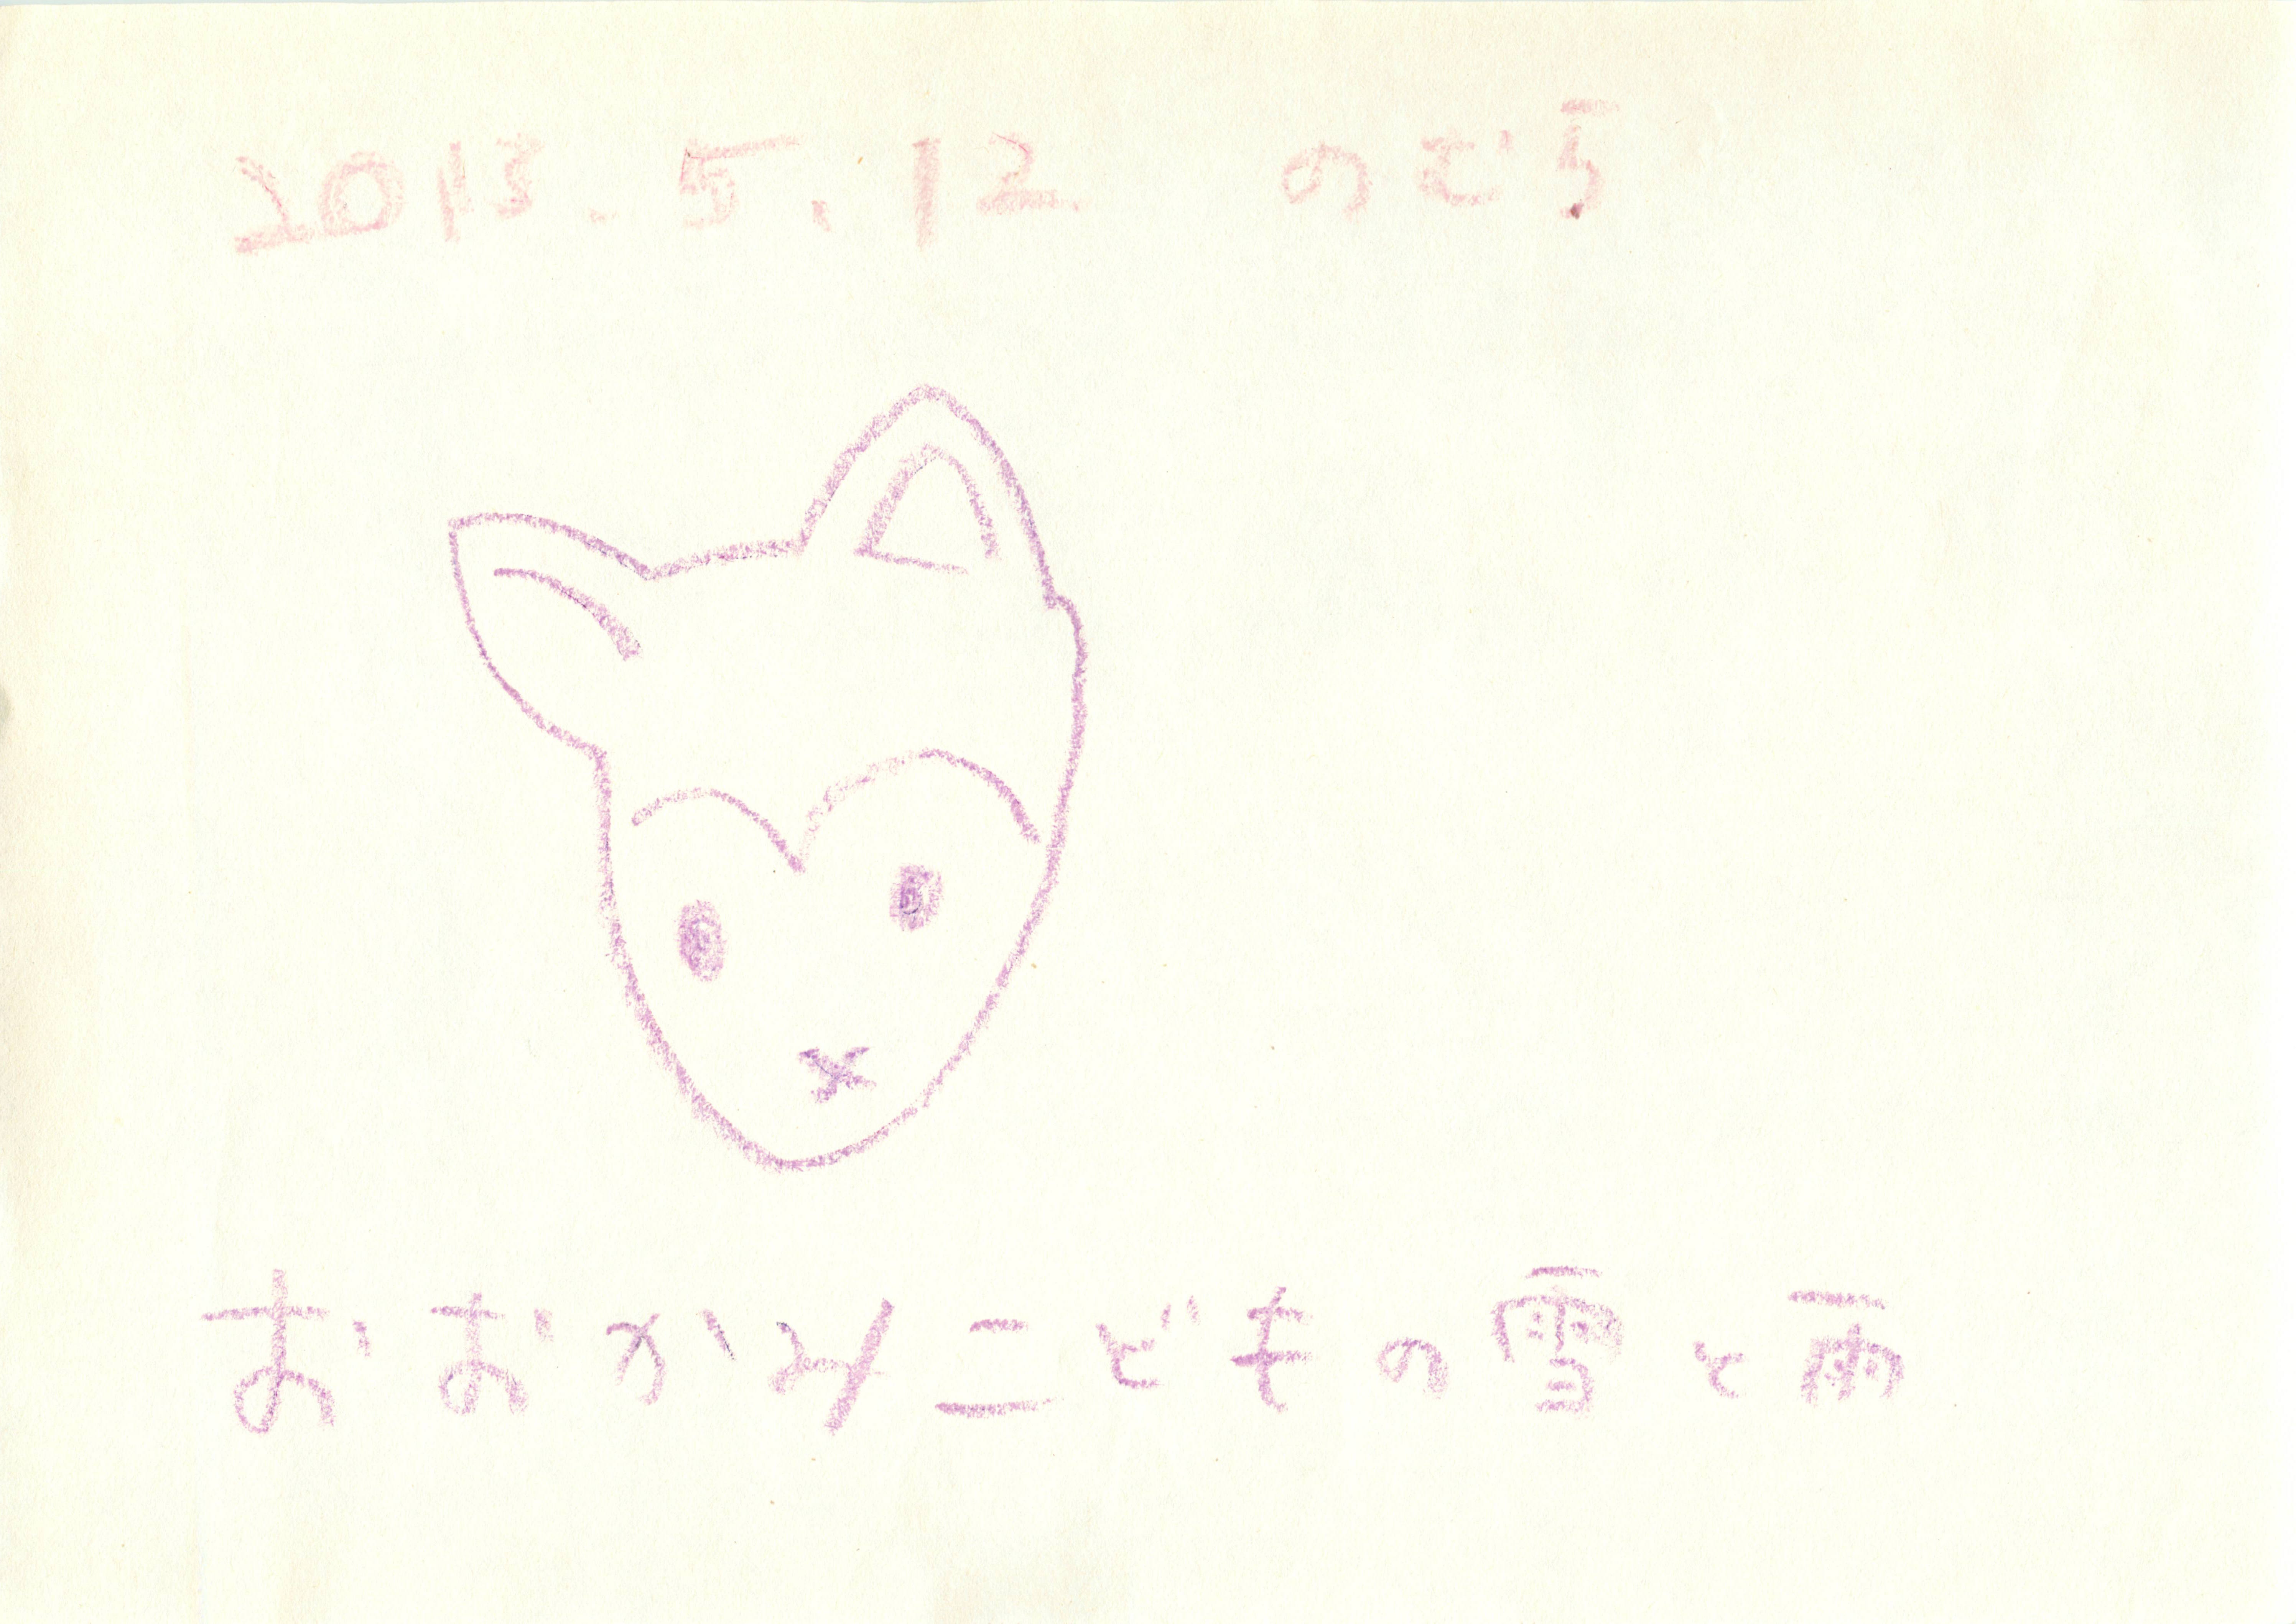 2013.5.12 のむら
おおかみこどもの雪と雨